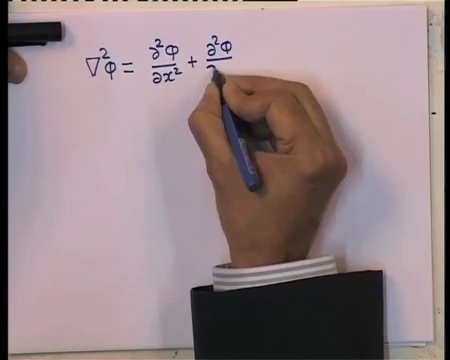 ∇²φ = ∂²φ/∂x² + ∂²φ/∂